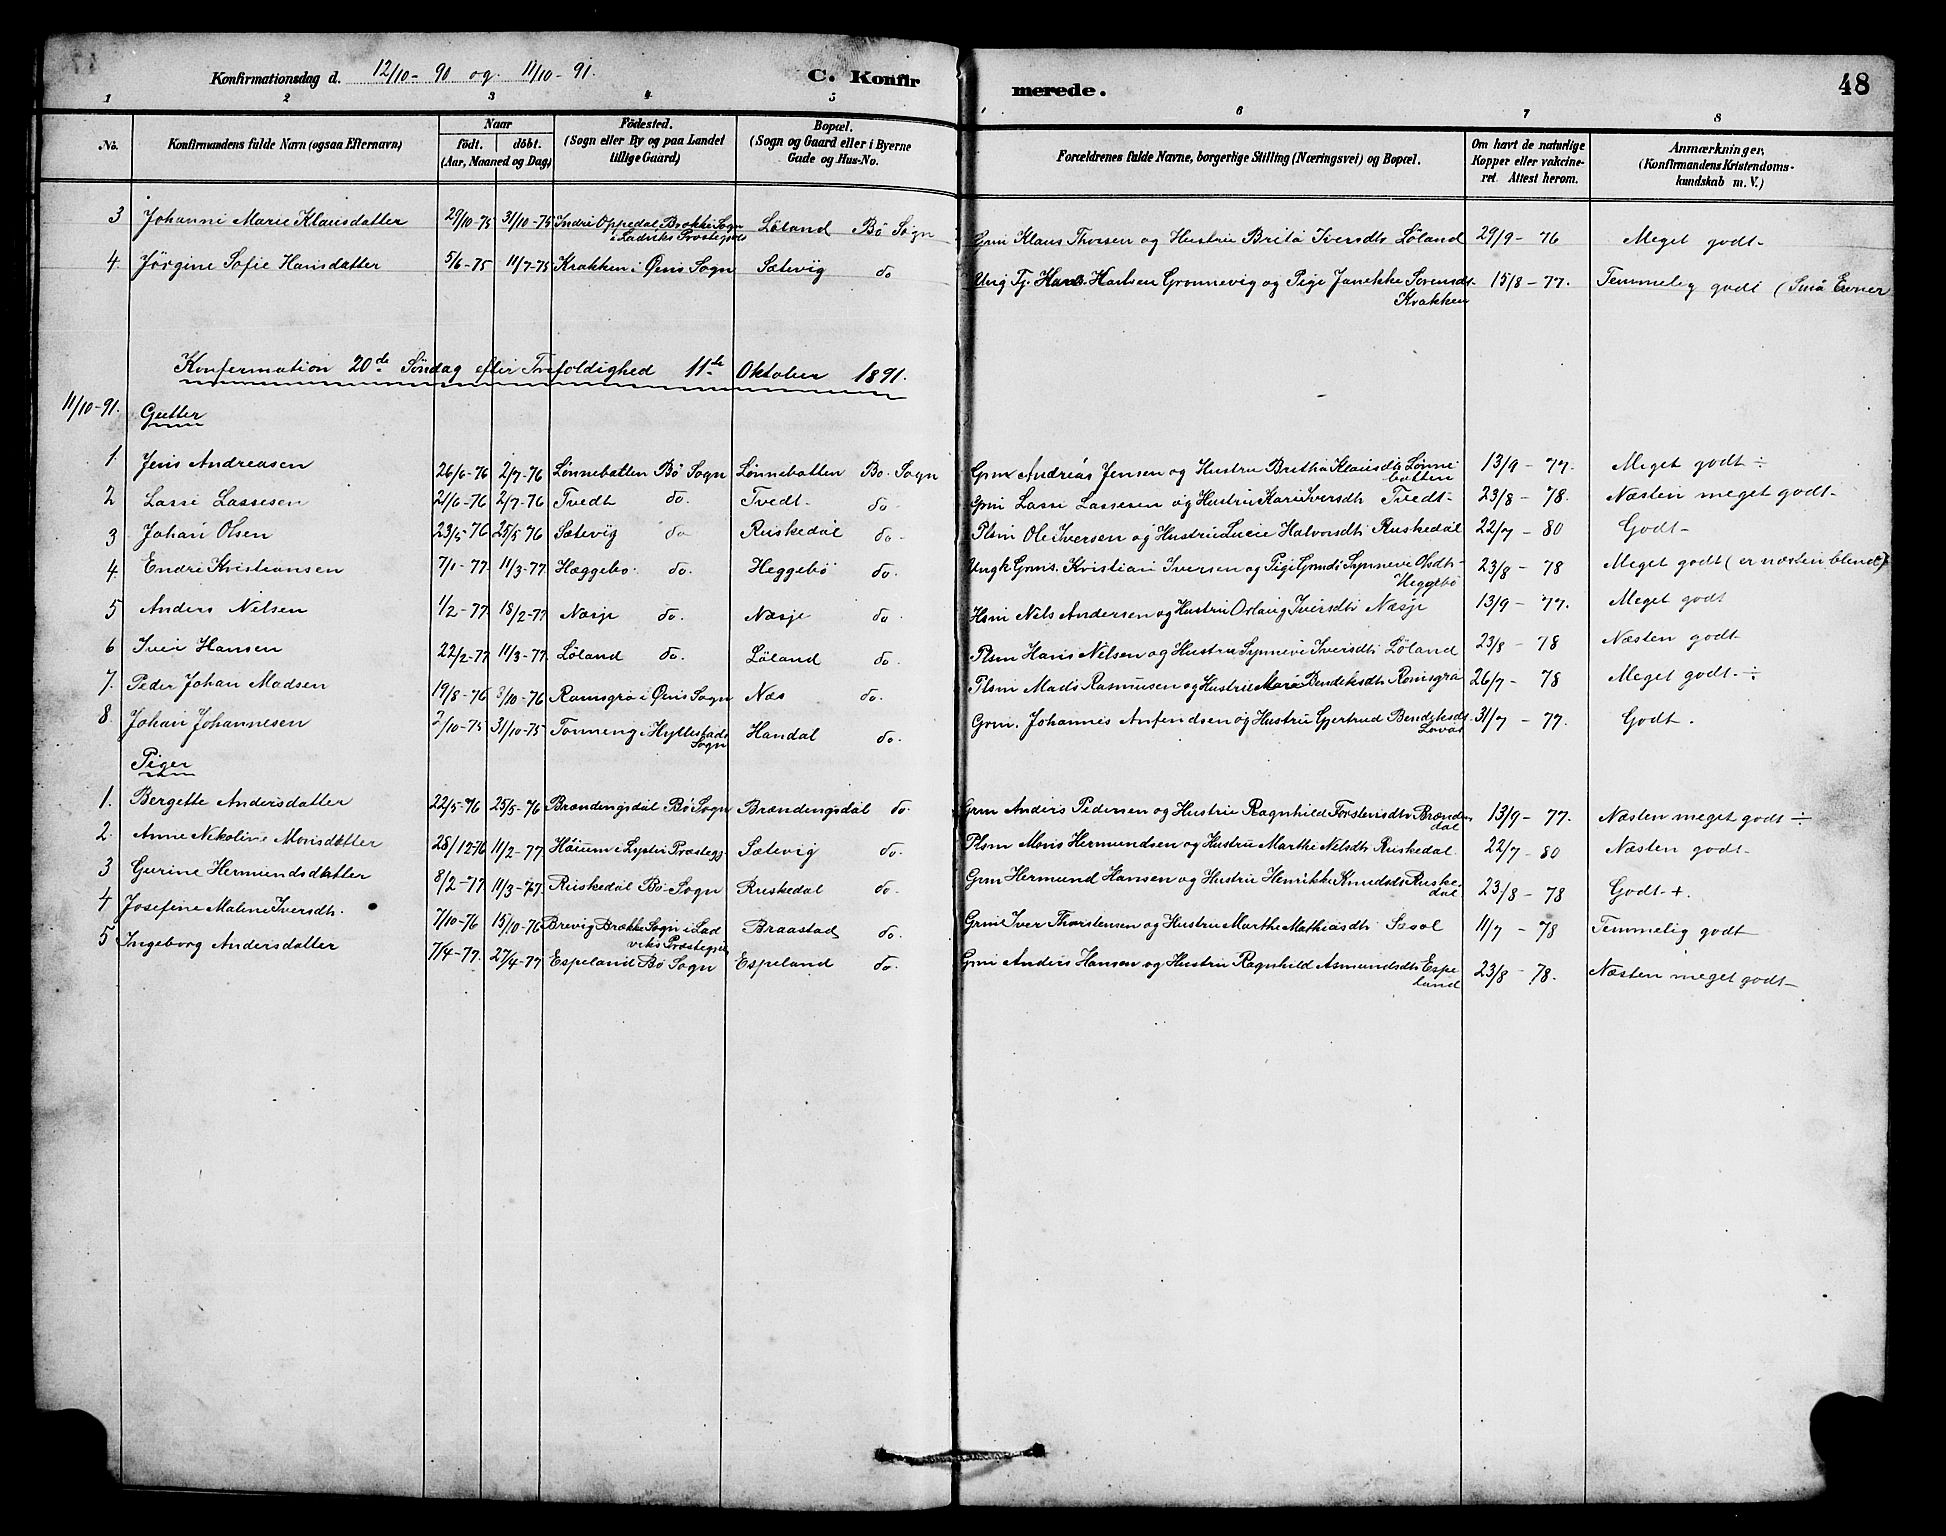 Konfirmationsdag d. 12/10 - 90 og 11/10 - 91. C. Konfirmerede. 48
1 2 3 4 5 6 7 8
No. Konfirmandens fulde Navn (ogsaa Efternavn) Naar födt. döbt. (Aar, Maaned og Dag) Födested. (Sogn eller By og paa Landet tillige Gaard) Bopæl. (Sogn og Gaard eller i Byerne Gade og Hus-No. Forældrenes fulde Navne, borgerlige Stilling (Næringsvei) og Bopæl. Om havt de naturlige Kopper eller vakcineret Attest herom. Anmærkninger, (Konfirmandens Kristendomskundskab m. V.)
3 Johanne Marie Klausdatter 29/10-75 31/10-75 Indre Oppedal Brække Sogn i Ladviks Prestegjeld Löland Bö Sogn Grm Klaus Thorsen og Hustru Brita Iversdtr Löland 29/9 - 76 Meget godt -
4. Jörgine Sofie Hansdatter 5/6-75 11/7-75 Krakken i Öens Sogn Sætevig do Ung Tj. Hans Hansen Grønnevig og Pige Janekke Sørensdt. Krakken 15/8 - 77. Temmelig godt (Små Evner
Konfirmation 20de Söndag efter Trefoldighed 11te Oktober 1891.
11/10-91. Gutter
1. Jens Andreasen 26/6-76 2/7-76 Lønnebotten Bö Sogn Lønnebotten Bö Sogn Grm Andreas Jensen og Hustru Britha Klausdtr Lønnebotten 13/9 - 77. Meget godt ÷
2 Lasse Lassesen 21/6-76 2/7-76 Tvedt do. Tvedt - do - Grm Lasse Lassesen og Hustru Kari Iversdtr Tvedt - 23/8 - 78. Næsten meget godt -
3 Johan Olsen 23/5-76 25/5 76 Sætevig do Ruskedal do - Plsm Ole Iversen og Hustru Lucie Halvorsdtr Ruskedal 22/7 - 80 Godt -
4. Endre Kristiansen 7/1-77 11/3-77 Hæggebö. do. Heggebö do. Ungk Grms. Kristian Iversen og Pige Grmd. Synneve Olsdtr Heggebö 23/8 - 78 Meget godt (er næsten blind)
5 Anders Nelsen 1/2-77 18/2-77 Næsje do. Næsje do. Hsm Nels Andersen og Hustru Orlaug Iversdtr Næsje 13/9 - 77. Meget godt
6 Iver Hansen 22/2-77 11/3-77. Löland do. Löland do. Plsm Hans Nelsen og Hustru Synneve Iversdtr Löland 23/8 - 78 Næsten godt
7. Peder Johan Madsen 19/8-76 8/10-76 Ramsgrø i Öens Sogn Næs do. Plsm Mads Rasmusen og Hustru Mari Bendeksdtr Romsgrø 26/7 - 78 Meget godt - ÷
8. Johan Johannesen 2/10-75 31/10-75 Tonneng i Hyllestads Sogn Handal do. Grm. Johannes Anfendsen og Hustru Gjertrud Bendeksdt. Løvås 31/7 - 77. Godt.
Piger
1. Bergette Andersdatter 22/5-76 25/5-76 Brændengsdal Bö Sogn Brændengsdal do. Grm Anders Pedersen og Hustru Ragnhild Torstensdtr Brændendal 13/9 - 77. Næsten meget godt ÷
2. Anne Nekoline Monsdatter 28/12-76 11/2-77 Høium i Lyster Præstegj. Sætevig do. Plsm Mons Hermundsen og Hustru Marthe Nelsdtr Ruskedal 22/7 - 80 Næsten godt -
3 Gurine Hermundsdatter 8/2-77 11/3-77 Ruskedal Bö Sogn Ruskedal do. Grm Hermund Hanssen og Hustru Henrikke Knudsdtr Ruskedal 23/8 - 78 Godt +
4 Josefine Malene Iversdtr. 7/10-76 15/10-76 Brevig Brække Sogn i Ladviks Præstegjeld Braastad do. Grm Iver Thorstensen og Hustru Marthe Mathiasdtr Sæsol 11/7 - 78 Temmelig godt
5 Ingeborg Andersdatter 7/4-77. 27/4-77 Espeland Bö Sogn Espeland do. Grm Anders Hansen og Hustru Ragnhild Asmundsdtr Espeland 23/8 - 78. Næsten meget godt -